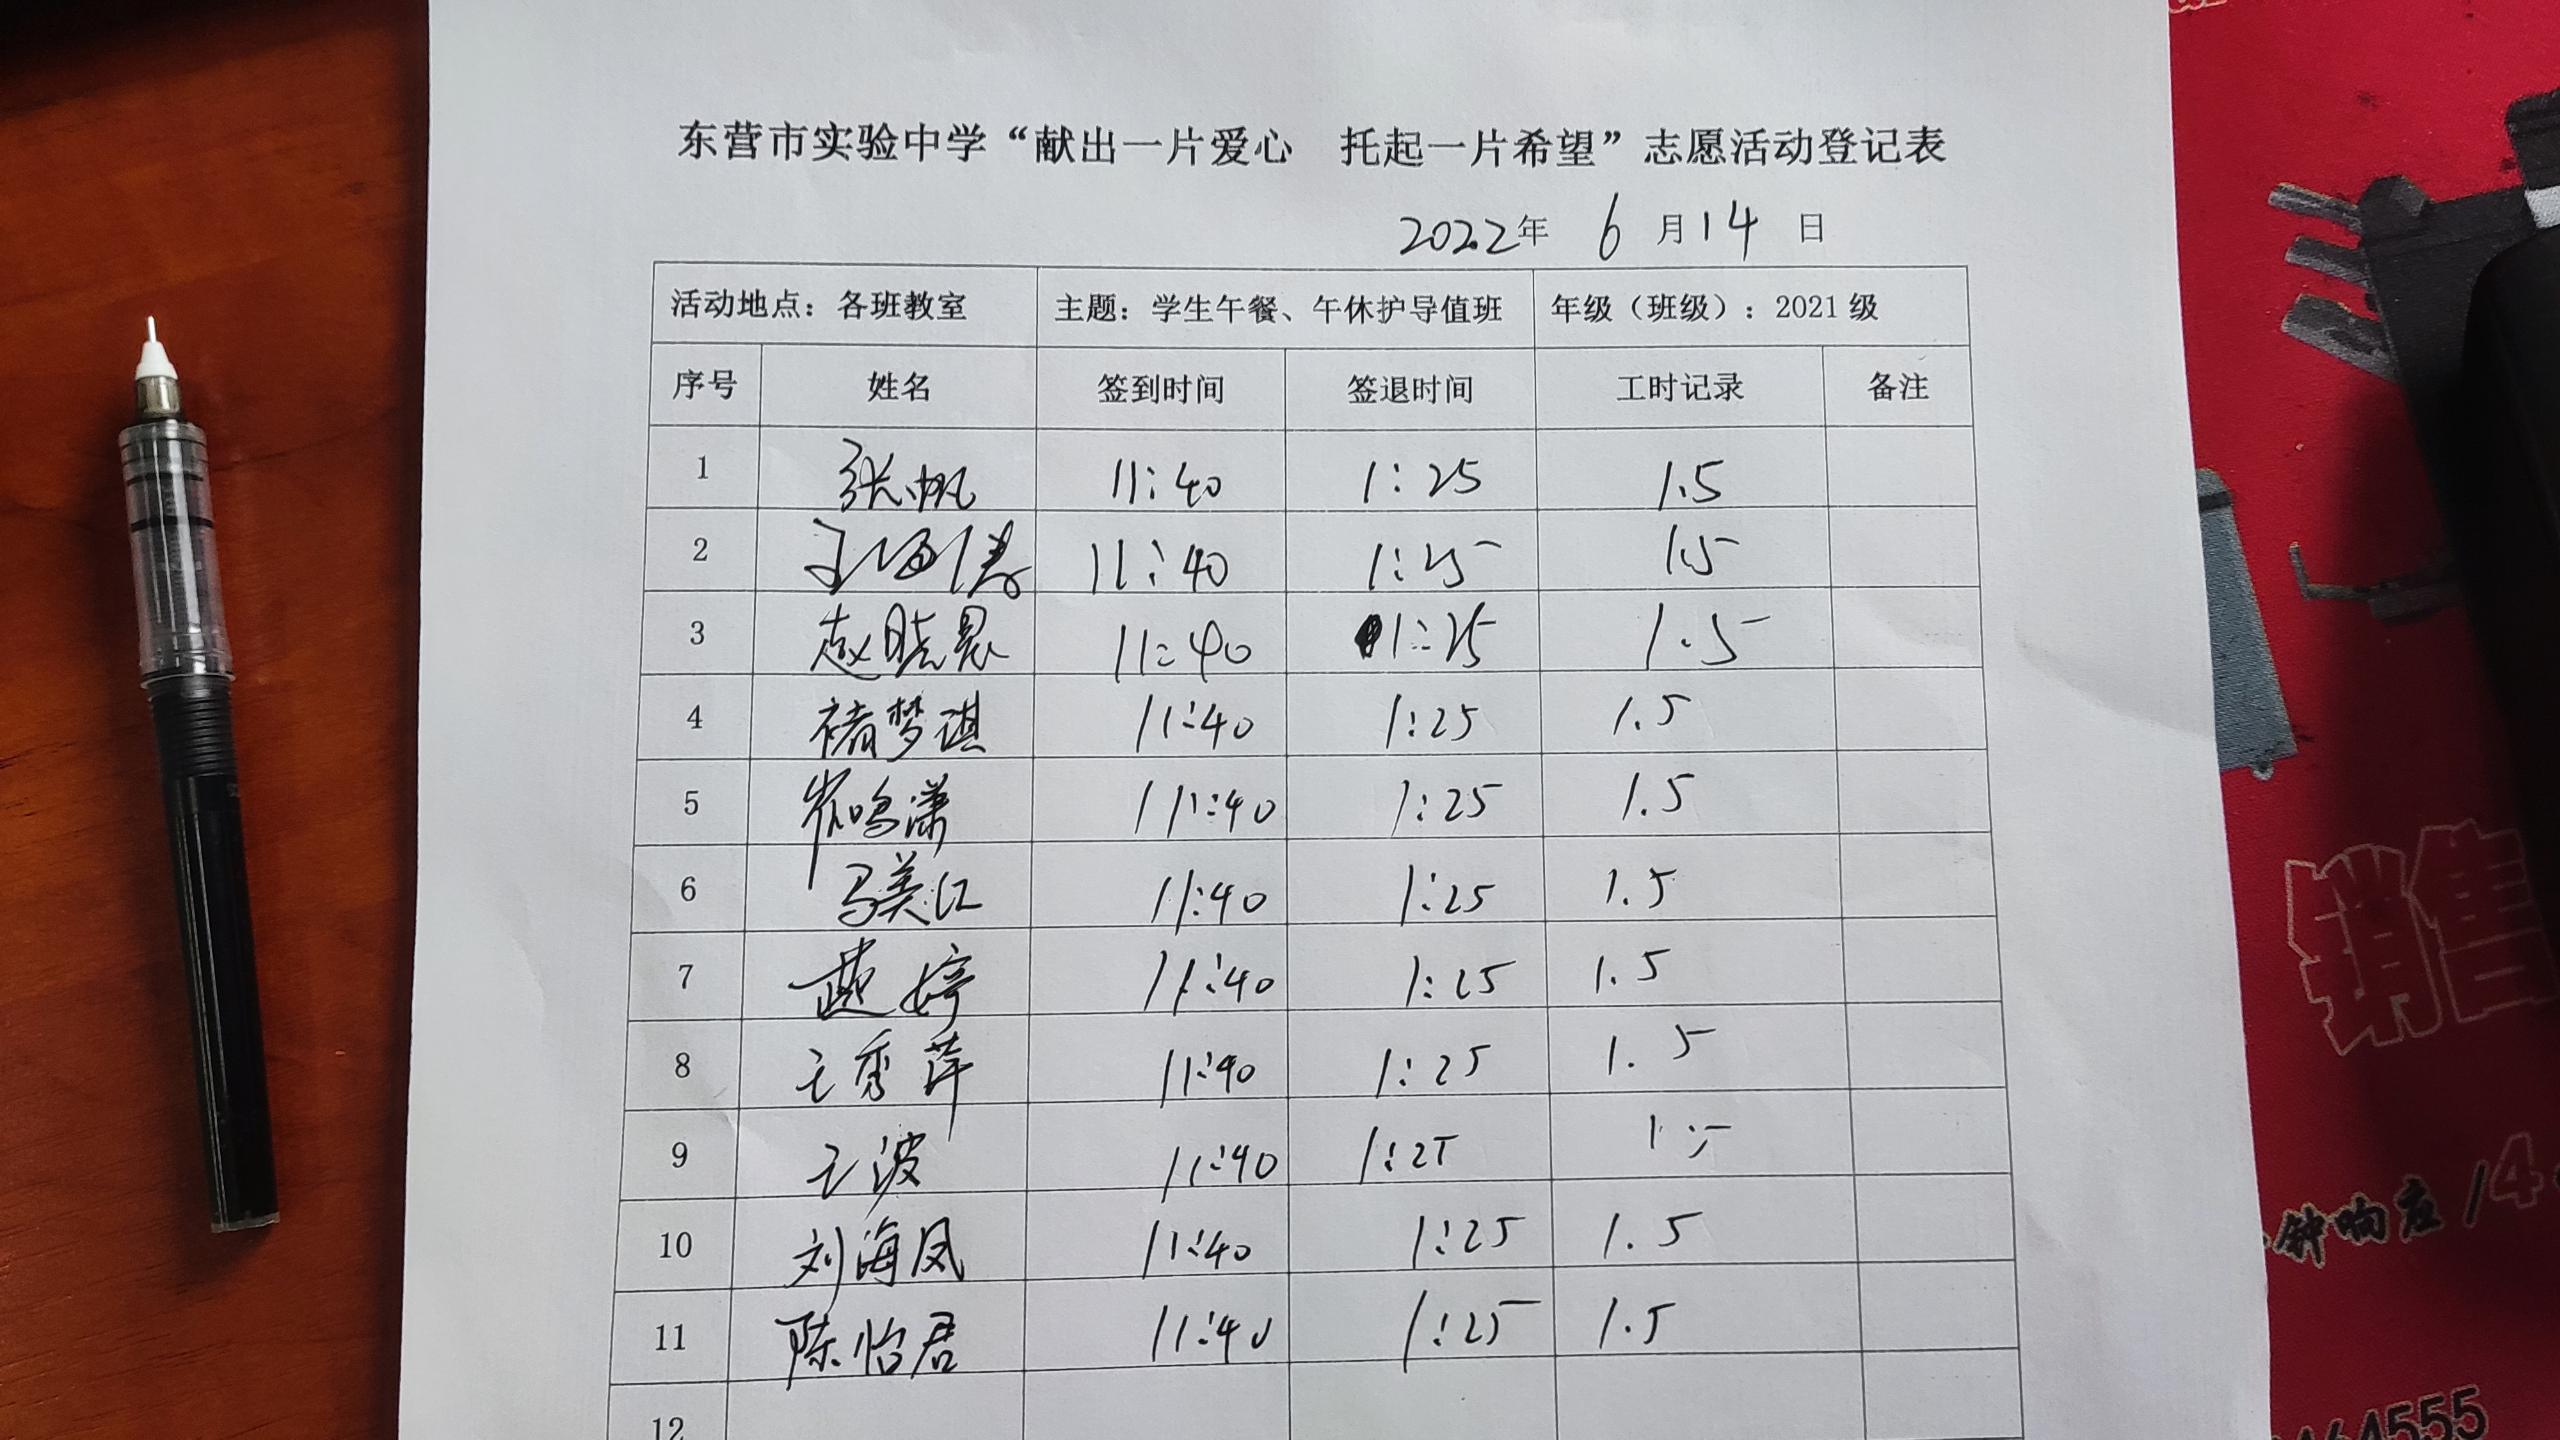 东营市实验中学“献出一片爱心 托起一片希望”志愿活动登记表
2022年 6 月 14 日
活动地点：各班教室 主题：学生午餐、午休护导值班 年级（班级）：2021 级
序号 姓名 签到时间 签退时间 工时记录 备注
1 张帆 11:40 1:25 1.5
2 11:40 1:25 1.5
3 赵晓晨 11:40 1:25 1.5
4 褚梦琪 11:40 1:25 1.5
5 崔鸣潇 11:40 1:25 1.5
6 马美江 11:40 1:25 1.5
7 燕婷 11:40 1:25 1.5
8 王秀萍 11:40 1:25 1.5
9 王波 11:40 1:25 1.5
10 刘海凤 11:40 1:25 1.5
11 陈怡君 11:40 1:25 1.5
12
销售
钟响应/4
64555